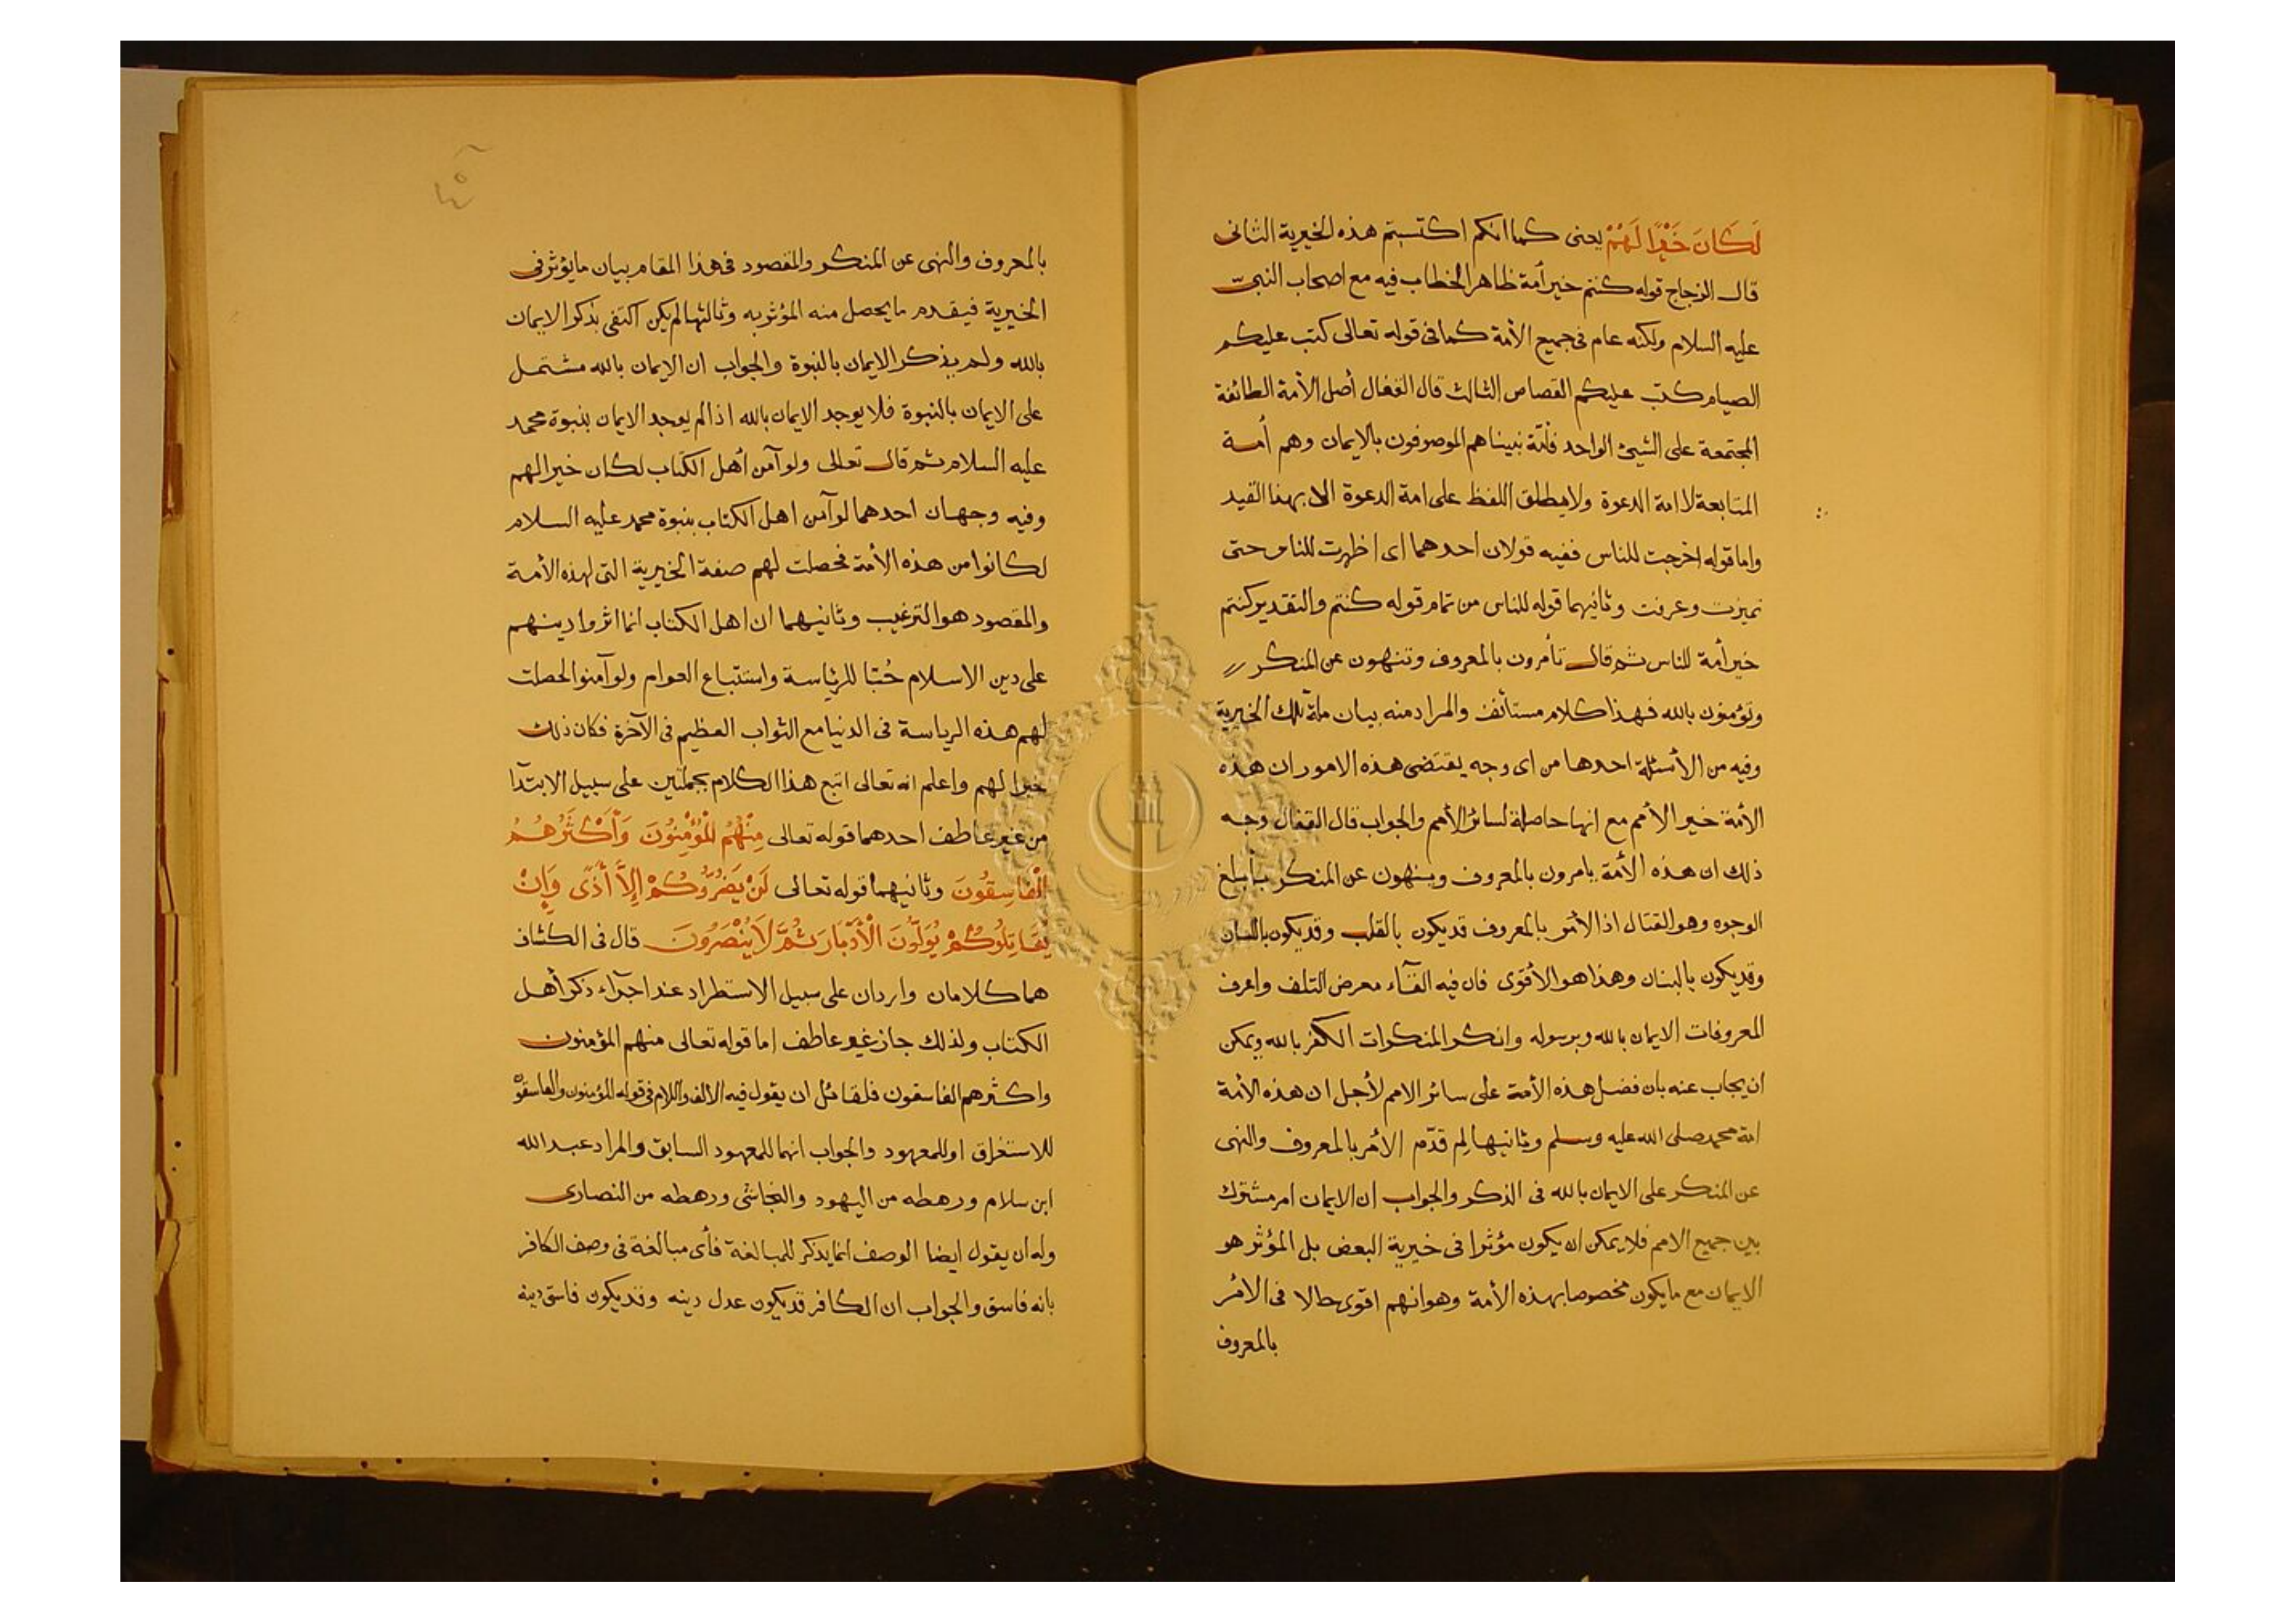 لَكَانَ خَيْرًا لَهُمْ يعنى كما انكم اكتسبتم هذه الخيرية الثانى
قال الزجاج قوله كنتم خير أمة ظاهر الخطاب فيه مع اصحاب النبىّ
عليه السلام ولكنه عام فى جميع الأمة كما فى قوله تعالى كتب عليكم
الصيام كتب عليكم القصاص الثالث قال القفال أصل الأمة الطائفة
المجتمعة على الشيئ الواحد فأمّة نبينا هم الموصوفون بالايمان وهم أمة
المتابعة لا امة الدعوة ولا يطلق اللفظ على امة الدعوة الا بهذا القيد
واما قوله اخرجت للناس ففيه قولان احدهما اى اظهرت للناس حتى
تميزت وعرفت وثانيهما قوله للناس من تمام قوله كنتم والتقدير كنتم
خير أمة للناس ثم قال تأمرون بالمعروف وتنهون عن المنكر
وتؤمنون بالله فهذا كلام مستأنف والمراد منه بيان تلك الخيرية
وفيه من الأسئلة احدها من اى وجه يقتضى هذه الامور ان هذه
الأمة خير الأمم مع انها حاصلة لسائر الأمم والجواب قال القفال وجه
ذلك ان هذه الأمة يامرون بالمعروف وينهون عن المنكر بأبلغ
الوجوه وهو القتال اذ الأمر بالمعروف قد يكون بالقلب وقد يكون باللسان
وقد يكون بالبنان وهذا هو الأقوى فان فيه القآء معرض التلف واعرف
المعروفات الايمان بالله وبرسوله وانكر المنكرات الكفر بالله ويمكن
ان يجاب عنه بان فضل هذه الأمة على سائر الامم لأجل ان هذه الأمة
امة محمد صلى الله عليه وسلم وثانيها لِم قدّم الأمر بالمعروف والنهى
عن المنكر على الايمان بالله فى الذكر والجواب ان الايمان امر مشترك
بين جميع الامم فلا يمكن ان يكون مؤثرا فى خيرية البعض بل المؤثر هو
الايمان مع ما يكون مخصوصا بهذه الأمة وهو انهم اقوى حالا فى الأمر
بالمعروف
بالمعروف والنهى عن المنكر والمقصود فى هذا المقام بيان ما يؤثر فى
الخيرية فيقدم ما يحصل منه المؤثر به وثالثها لم يكن اكتفى بذكر الايمان
بالله ولم يذكر الايمان بالنبوة والجواب ان الايمان بالله مشتمل
على الايمان بالنبوة فلا يوجد الايمان بالله اذا لم يوجد الايمان بنبوة محمد
عليه السلام ثم قال تعالى ولو آمن أهل الكتاب لكان خيرا لهم
وفيه وجهان احدهما لو آمن اهل الكتاب بنبوة محمد عليه السلام
لكانوا من هذه الأمة فحصلت لهم صفة الخيرية التى لهذه الأمة
والمقصود هو الترغيب وثانيهما ان اهل الكتاب انما اثروا دينهم
على دين الاسلام حُبّا للرئاسة واستتباع العوام ولو آمنوا لحصلت
لهم هذه الرياسة فى الدنيا مع الثواب العظيم فى الآخرة فكان ذلك
خيرا لهم واعلم انه تعالى اتبع هذا الكلام بجملتين على سبيل الابتدآ
من غير عاطف احدهما قوله تعالى مِنْهُمُ الْمُؤْمِنُونَ وَأَكْثَرُهُمُ
الْفَاسِقُونَ وثانيهما قوله تعالى لَنْ يَضُرُّوكُمْ إِلَّا أَذًى وَإِنْ
يُقَاتِلُوكُمْ يُوَلُّونَ الْأَدْبَارَ ثُمَّ لَا يُنْصَرُونَ قال فى الكشاف
هما كلامان واردان على سبيل الاستطراد عند اجرآء ذكر أهل
الكتاب ولذلك جاز غير عاطف اما قوله تعالى منهم المؤمنون
واكثرهم الفاسقون فلقائل ان يقول فيه الالف واللام فى قوله المؤمنون والفاسقون
للاستغراق او للمعهود والجواب انهما للمعهود السابق والمراد عبد الله
ابن سلام ورهطه من اليهود والنجاشى ورهطه من النصارى
وله ان يقول ايضا الوصف انما يذكر للمبالغة فأى مبالغة فى وصف الكافر
بانه فاسق والجواب ان الكافر قد يكون عدل دينه وقد يكون فاسق دينه